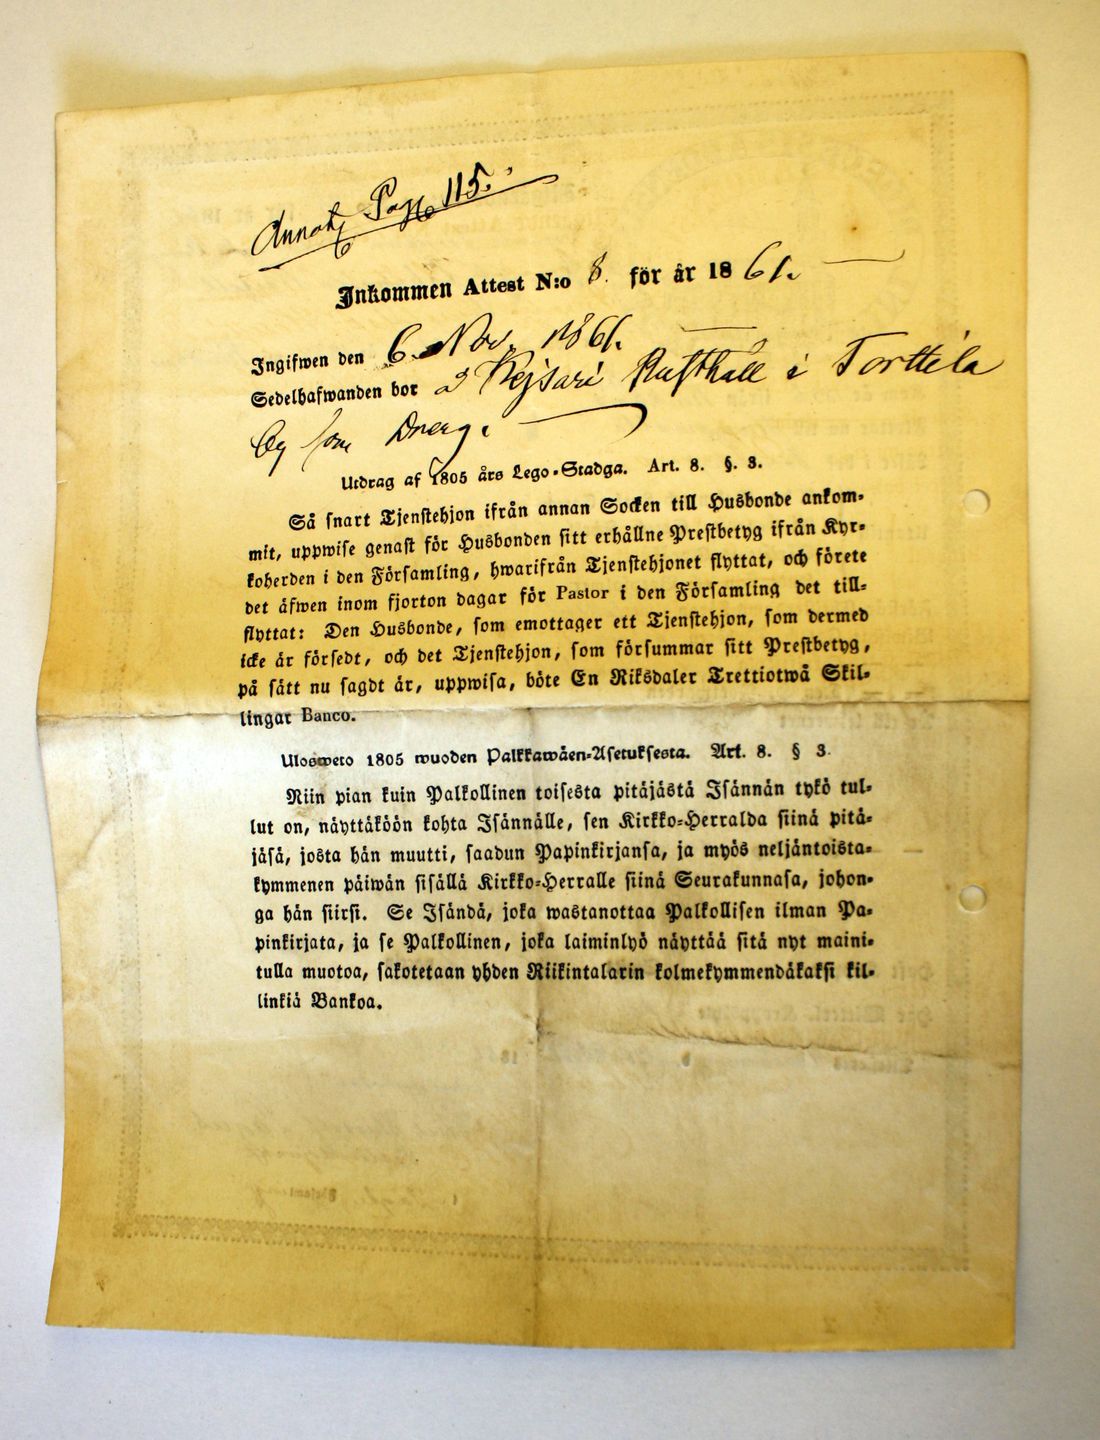 Annot. Pag. 115.
Inkommen Attest N:o 8. för år 1861.
Ingifwen den 6. Nov. 1861.
Sedelhafwanden bor å Kejsari Rusthåll i Torttila
Og som Dreng.
Utdrag af 1805 års Lego-Stadga. Art. 8. §. 3.
Så snart Tjenstehjon ifrån annan Socken till Husbonde ankom-
mit, uppwise genast för Husbonden sitt erhållne Prestbetyg ifrån Kyr-
koherden i den Församling, hwarifrån Tjenstehjonet flyttat, och förete
det äfwen inom fjorton dagar för Pastor i den Församling det till-
flyttat: Den Husbonde, som emottager ett Tjenstehjon, som dermed
icke är försedt, och det Tjenstehjon, som försummar sitt Prestbetyg,
på sätt nu sagdt är, uppwisa, böte En Riksdaler Trettiotwå Skil-
lingar Banco.
Ulosweto 1805 wuoden Palkkawäen-Asetuksesta. Art. 8. § 3.
Niin pian kuin Palkollinen toisesta pitäjästä Isännän tykö tul-
lut on, näyttäköön kohta Isännälle, sen Kirkko-Herralda siinä pitä-
jäsä, josta hän muutti, saadun Papinkirjansa, ja myös neljäntoista-
kymmenen päiwän sisällä Kirkko-Herralle siinä Seurakunnasa, johon-
ga hän siirsi. Se Isändä, joka wastanottaa Palkollisen ilman Pa-
pinkirjata, ja se Palkollinen, joka laiminlyö näyttää sitä nyt maini-
tulla muotoa, sakotetaan yhden Riikintalarin kolmekymmendäkaksi kil-
linkiä Bankoa.